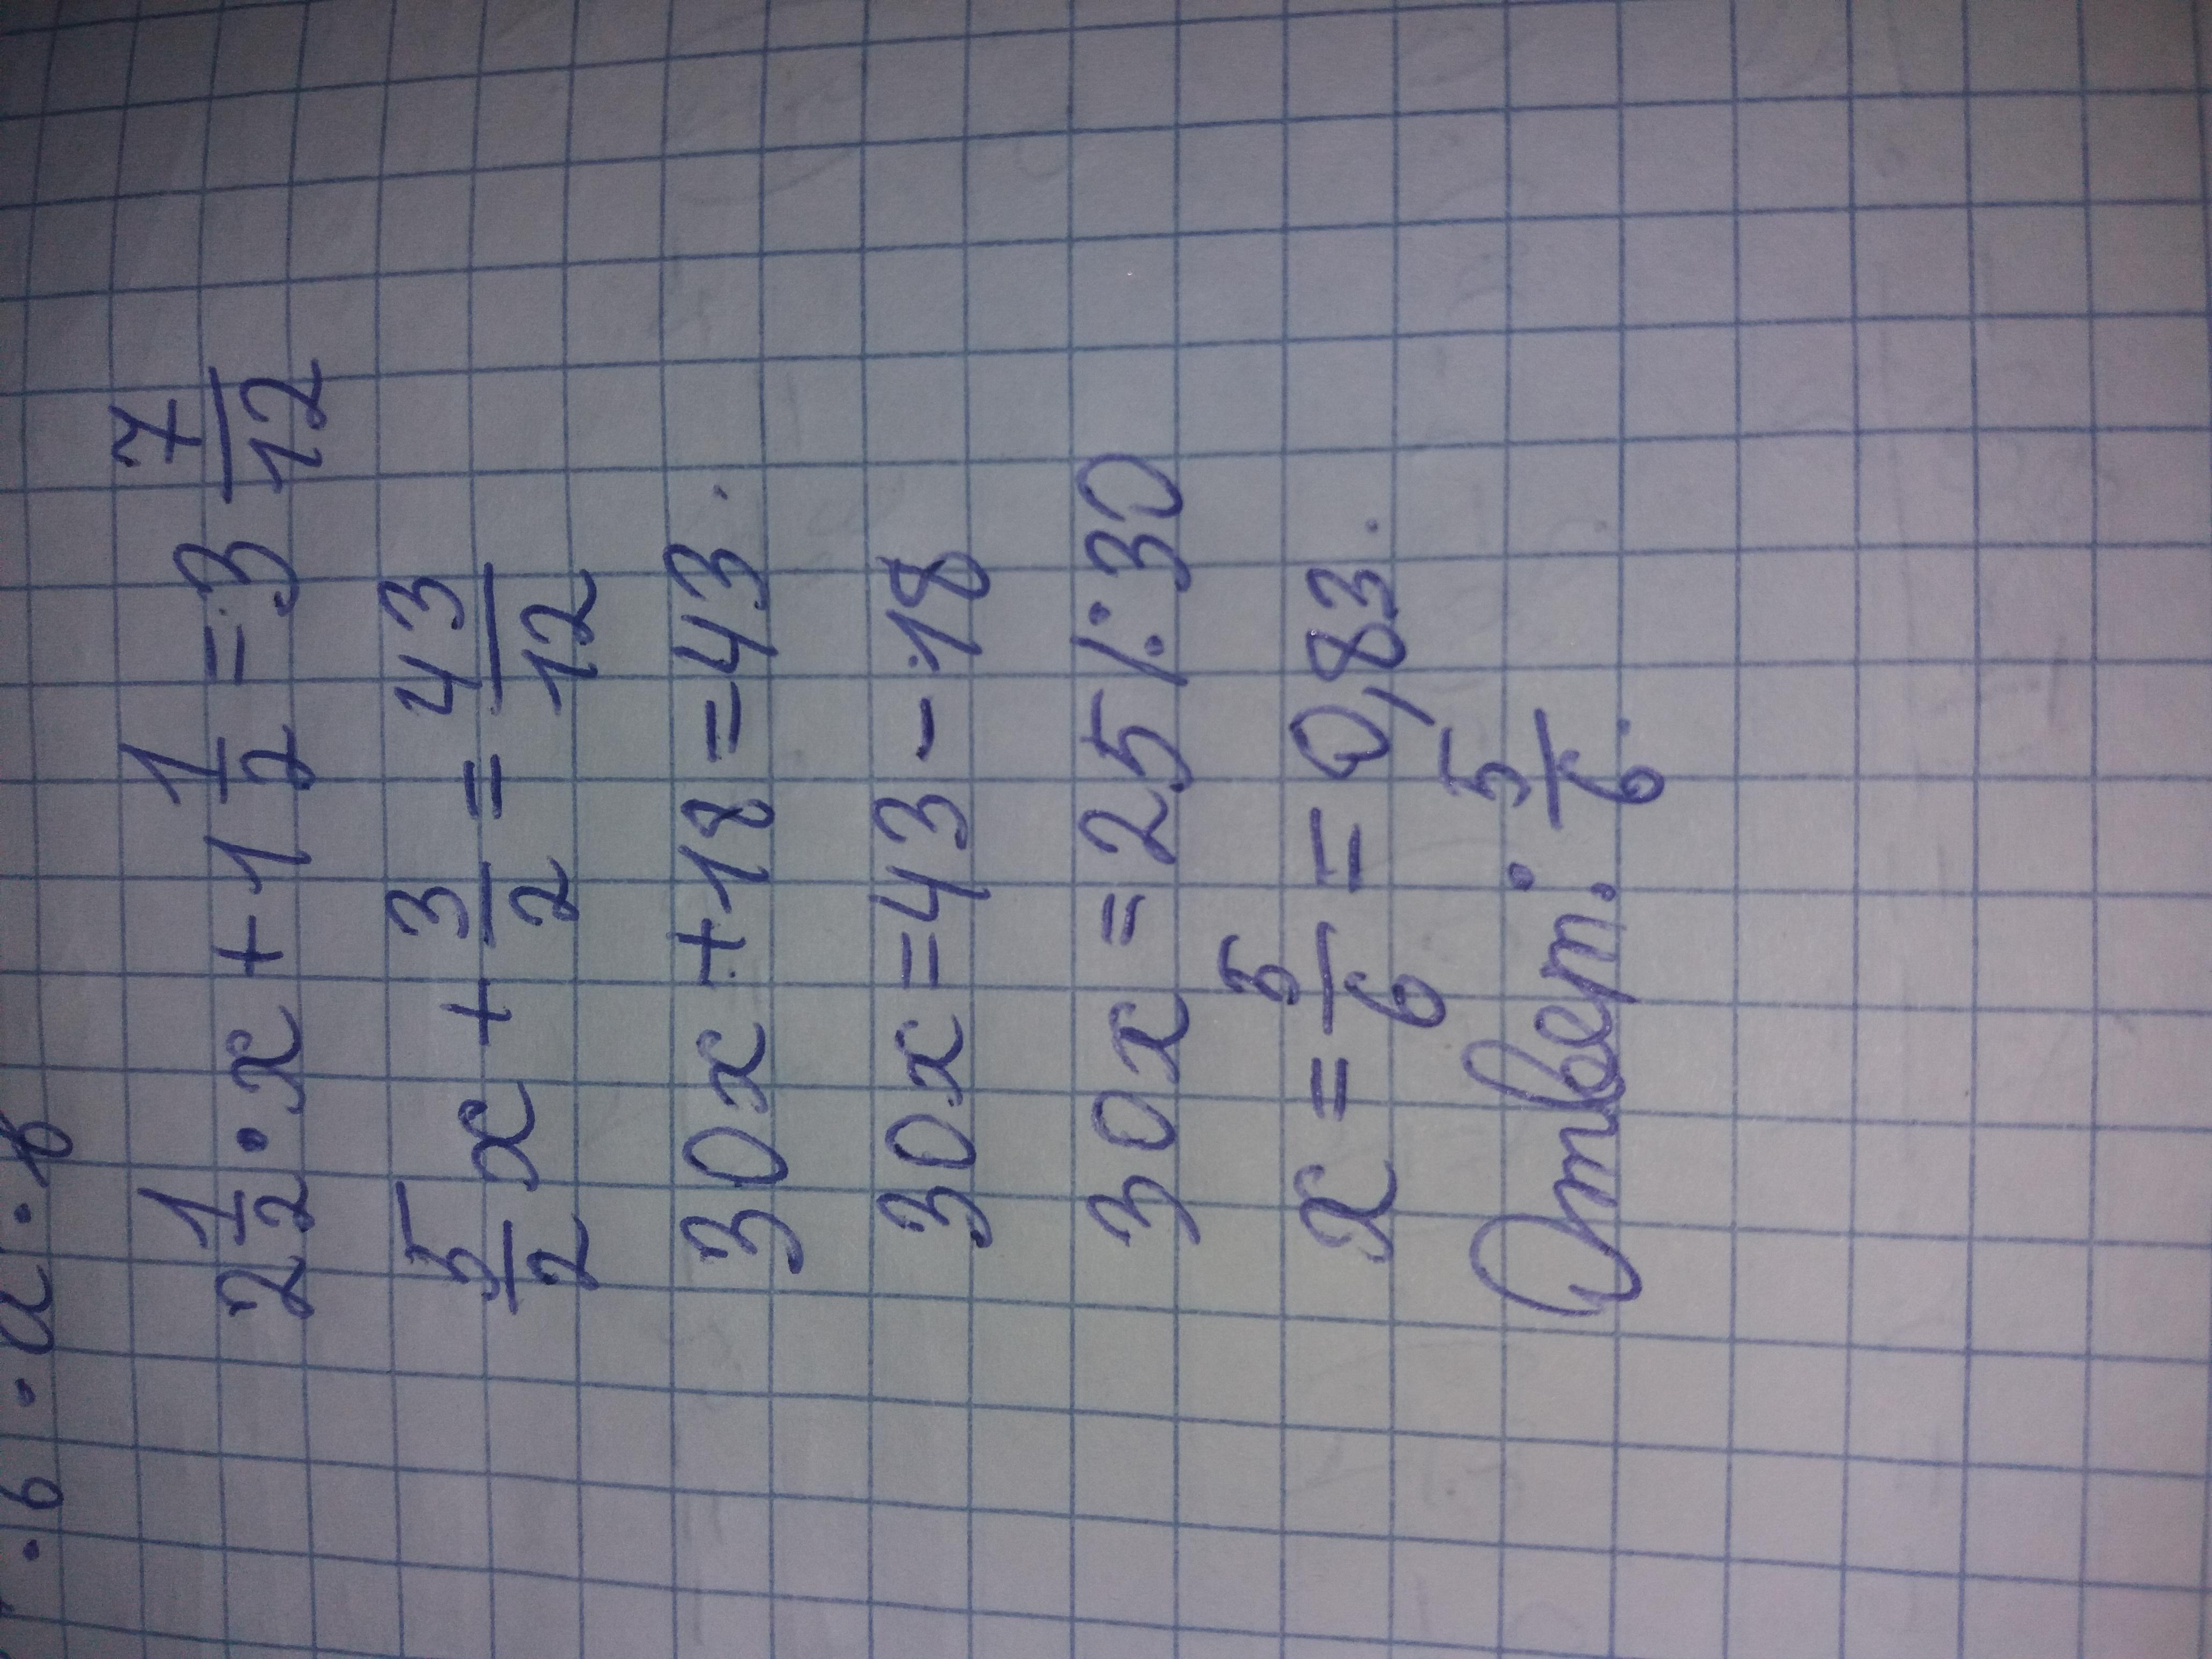 · 6 · a · b
2 1/2 · x + 1 1/2 = 3 7/12
5/2 x + 3/2 = 43/12
30x + 18 = 43.
30x = 43 - 18
30x = 25 /: 30
x = 5/6 = 0,83.
Ответ: 5/6.